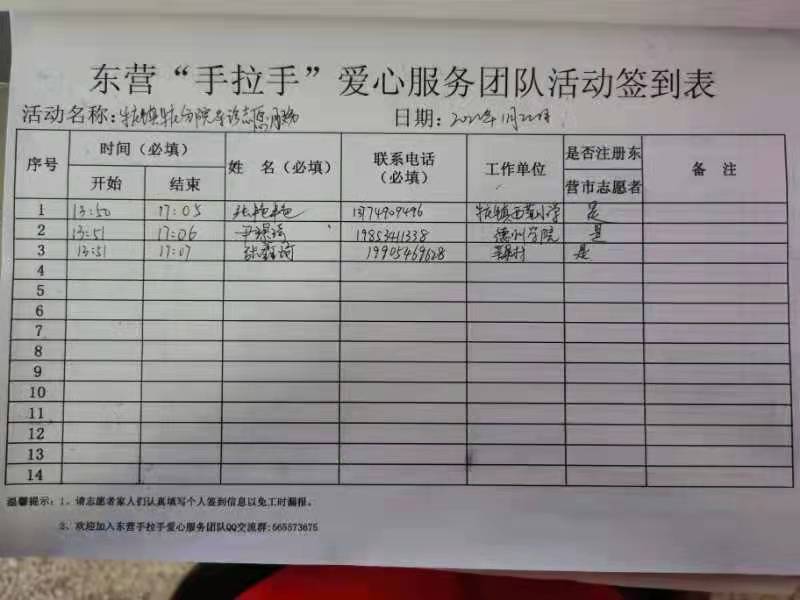 东营“手拉手”爱心服务团队活动签到表
活动名称：牛庄镇牛庄分院导诊志愿服务 日期：2022年11月22日
序号 时间（必填） 姓 名（必填） 联系电话（必填） 工作单位 是否注册东营市志愿者 备 注
开始 结束
1 13:50 17:05 张艳艳 1374909496 牛庄镇西范小学 是
2 13:51 17:06 尹 19853411338 德州学院 是
3 13:51 17:07 张鑫琦 19905469628 是
4
5
6
7
8
9
10
11
12
13
14
温馨提示：1、请志愿者家人们认真填写个人签到信息以免工时漏报。
2、欢迎加入东营手拉手爱心服务团队QQ交流群:565573675